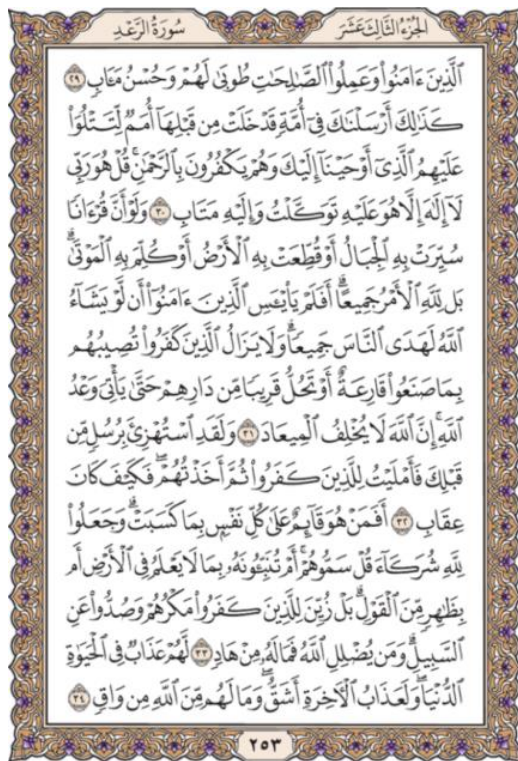 سُورَةُ الرَّعْدِ
الجُزْءُ الثَّالِثَ عَشَرَ
ٱلَّذِينَ ءَامَنُوا۟ وَعَمِلُوا۟ ٱلصَّٰلِحَٰتِ طُوبَىٰ لَهُمْ وَحُسْنُ مَـَٔابٍ ٢٩
كَذَٰلِكَ أَرْسَلْنَٰكَ فِىٓ أُمَّةٍ قَدْ خَلَتْ مِن قَبْلِهَآ أُمَمٌ لِّتَتْلُوَا۟
عَلَيْهِمُ ٱلَّذِىٓ أَوْحَيْنَآ إِلَيْكَ وَهُمْ يَكْفُرُونَ بِٱلرَّحْمَٰنِ ۚ قُلْ هُوَ رَبِّى
لَآ إِلَٰهَ إِلَّا هُوَ عَلَيْهِ تَوَكَّلْتُ وَإِلَيْهِ مَتَابِ ٣٠ وَلَوْ أَنَّ قُرْءَانًا
سُيِّرَتْ بِهِ ٱلْجِبَالُ أَوْ قُطِّعَتْ بِهِ ٱلْأَرْضُ أَوْ كُلِّمَ بِهِ ٱلْمَوْتَىٰ ۗ
بَل لِّلَّهِ ٱلْأَمْرُ جَمِيعًا ۗ أَفَلَمْ يَا۟يْـَٔسِ ٱلَّذِينَ ءَامَنُوٓا۟ أَن لَّوْ يَشَآءُ
ٱللَّهُ لَهَدَى ٱلنَّاسَ جَمِيعًا ۗ وَلَا يَزَالُ ٱلَّذِينَ كَفَرُوا۟ تُصِيبُهُم
بِمَا صَنَعُوا۟ قَارِعَةٌ أَوْ تَحُلُّ قَرِيبًا مِّن دَارِهِمْ حَتَّىٰ يَأْتِىَ وَعْدُ
ٱللَّهِ ۚ إِنَّ ٱللَّهَ لَا يُخْلِفُ ٱلْمِيعَادَ ٣١ وَلَقَدِ ٱسْتُهْزِئَ بِرُسُلٍ مِّن
قَبْلِكَ فَأَمْلَيْتُ لِلَّذِينَ كَفَرُوا۟ ثُمَّ أَخَذْتُهُمْ ۖ فَكَيْفَ كَانَ
عِقَابِ ٣٢ أَفَمَنْ هُوَ قَآئِمٌ عَلَىٰ كُلِّ نَفْسٍۭ بِمَا كَسَبَتْ ۗ وَجَعَلُوا۟
لِلَّهِ شُرَكَآءَ قُلْ سَمُّوهُمْ ۚ أَمْ تُنَبِّـُٔونَهُۥ بِمَا لَا يَعْلَمُ فِى ٱلْأَرْضِ أَم
بِظَٰهِرٍ مِّنَ ٱلْقَوْلِ ۗ بَلْ زُيِّنَ لِلَّذِينَ كَفَرُوا۟ مَكْرُهُمْ وَصُدُّوا۟ عَنِ
ٱلسَّبِيلِ ۗ وَمَن يُضْلِلِ ٱللَّهُ فَمَا لَهُۥ مِنْ هَادٍ ٣٣ لَّهُمْ عَذَابٌ فِى ٱلْحَيَوٰةِ
ٱلدُّنْيَا ۖ وَلَعَذَابُ ٱلْءَاخِرَةِ أَشَقُّ ۖ وَمَا لَهُم مِّنَ ٱللَّهِ مِن وَاقٍ ٣٤
٢٥٣